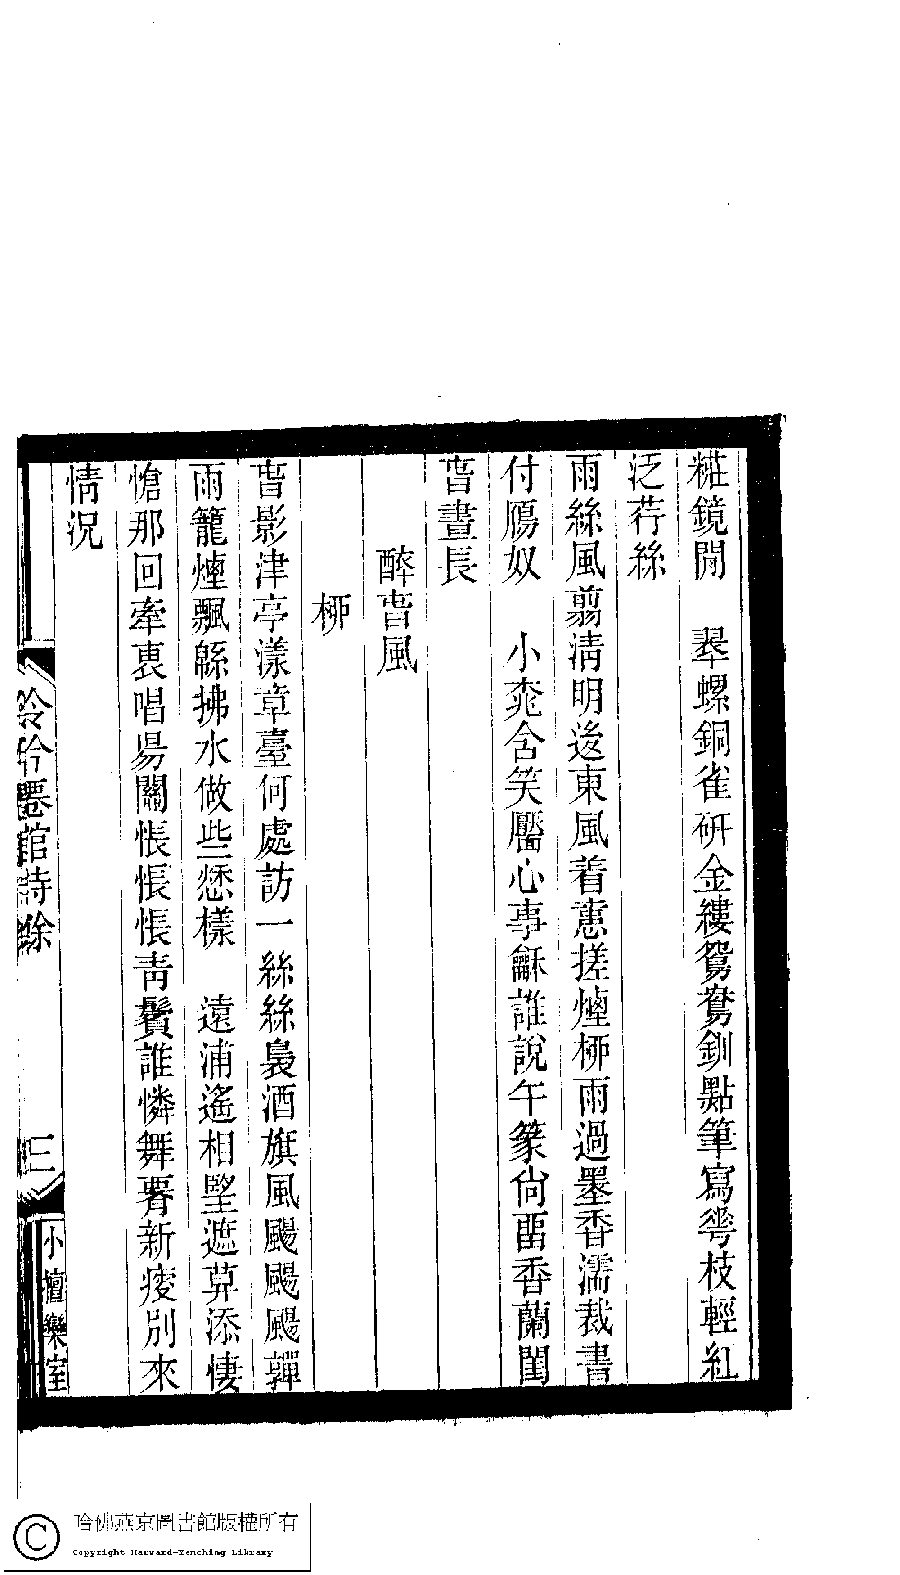 糚鏡開　翠螺銅雀研金縷鴛鴦釧點筆寫華枝輕紅
泛荇絲
雨絲風翦淸明後東風着意搓煙桺雨過墨香濡裁書
付鴈奴　小窕含笑靨心事龢誰說午篆尙畱香蘭閨
旾晝長
醉旾風
桺
旾影津亭漾章臺何處訪一絲絲裊酒旗風颺颺颺軃
雨籠煙飄緜拂水做些愁樣　遠浦遙相朢遮莫添悽
愴那回牽裛唱昜關悵悵悵靑鬢誰憐舞霄新痠別來
情況
泠泠僊館詩餘
三
小檀欒室
哈佛燕京圖書館版權所有
Copyright Harvard-Yenching Library